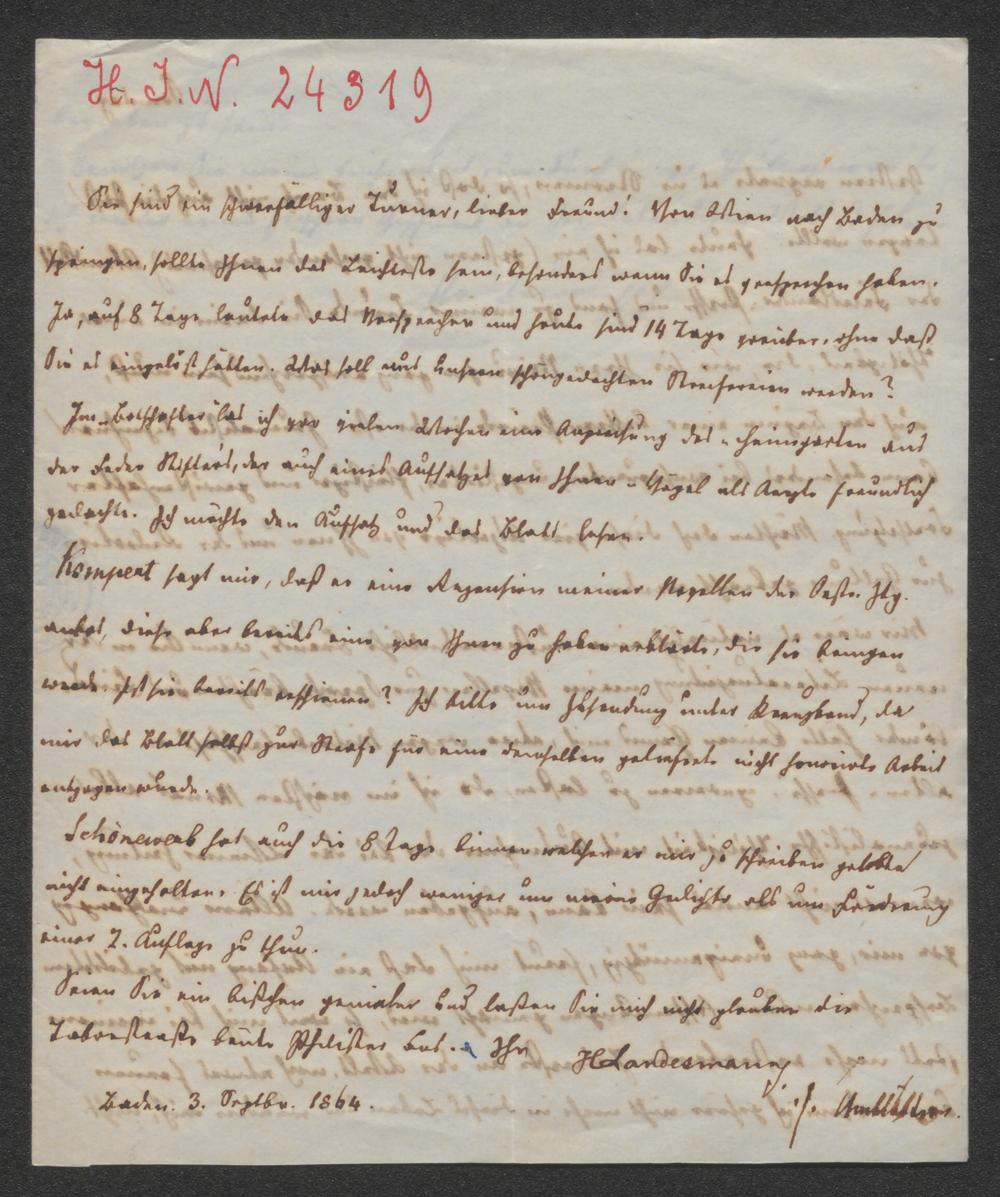 H. I. N. 24319
Sie sind ein schwerfälliger Turner, lieber Freund! Von Wien nach Baden zu
springen, sollte Ihnen das Leichteste sein, besonders wenn Sie es versprochen haben.
Ja, auf 8 Tage lautete das Versprechen und heute sind 14 Tage vorüber, ohne daß
Sie es eingelöst hätten. Was soll aus unseren schöngedachten Streifereien werden?
Im „Botschafter" las ich vor vielen Wochen eine Anpreisung des „Heimgarten" aus
der Feder Stifters, der auch eines Aufsatzes von Ihnen „Vögel als Aerzte" freundlich
gedachte. Ich möchte den Aufsatz und das Blatt lesen.
Kompert sagt mir, daß er eine Rezension meiner Novellen der Ostr. Ztg.
anbot, diese aber bereits eine von Ihnen zu haben erklärte, die sie bringen
werde. Ist sie bereits erschienen? Ich bitte um Zusendung unter Kreuzband, da
mir das Blatt selbst zur Strafe für eine demselben gelieferte nicht honorirte Arbeit
entzogen wurde.
Schönewerk hat auch die 8 Tage binnen welchen er mir zu schreiben gelobte
nicht eingehalten. Es ist mir jedoch weniger um meine Gedichte als um Förderung
einer 2. Auflage zu thun.
Seien Sie ein bischen genialer und lassen Sie mich nicht glauben die
Taborstraße brüte Philister aus. Ihr HLandesmann
Baden. 3. Septbr. 1864.